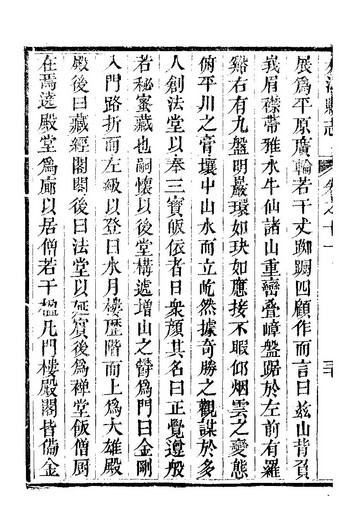 縣志
展為平原廣輪若干丈踟躕四顧作而言曰兹山背負
峩眉襟帶雅水牛仙諸山重巒叠嶂盤踞於左前有羅
谿右有九盤明巖環如玦如應接不暇仰烟雲之變態
俯平川之膏壤中山水而立屹然據奇勝之觀謀於多
人創法堂以奉三寶皈依者日衆顏其名曰正覺般
若秘蜜藏也嗣懷以後堂構遞增山之欝為門曰金剛
入門路折而左級以登曰水月樓歷階而上為大雄殿
殿後曰藏經閣閣後曰法堂以延賓後為禪堂飯僧厨
在焉遶殿堂為廊以居僧若干楹凡門樓殿閣皆備金